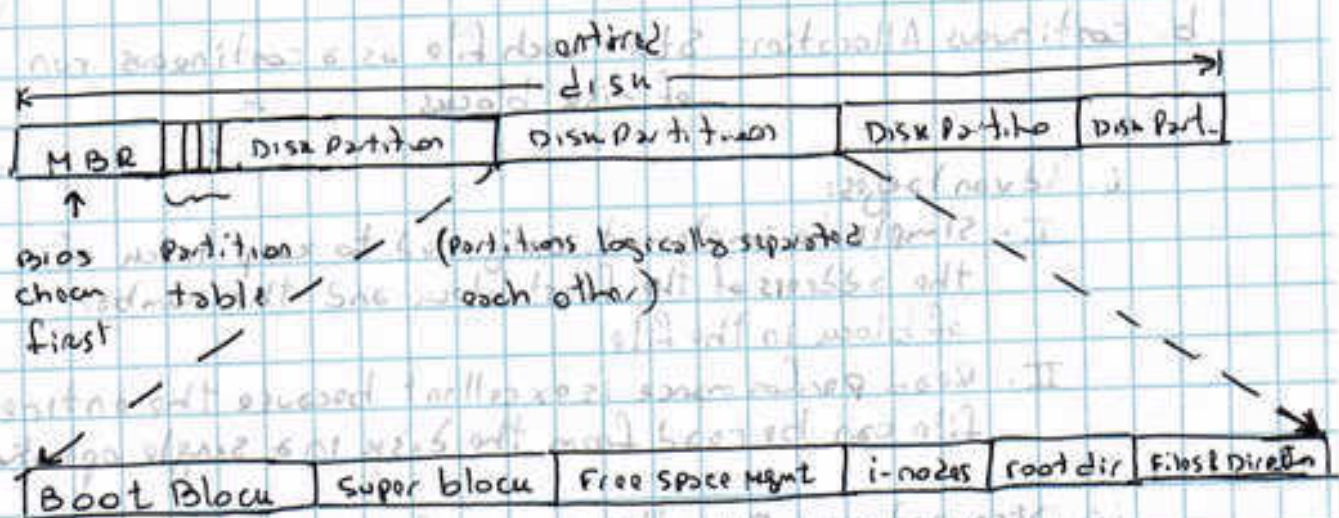 entire
disk
MBR Disk Partition Disk Partition Disk Partitio Disk Part.
BIOS Partition (partitions logically separated
table each other)
first
Boot Block Super block Free Space Mgmt i-nodes root dir Files &